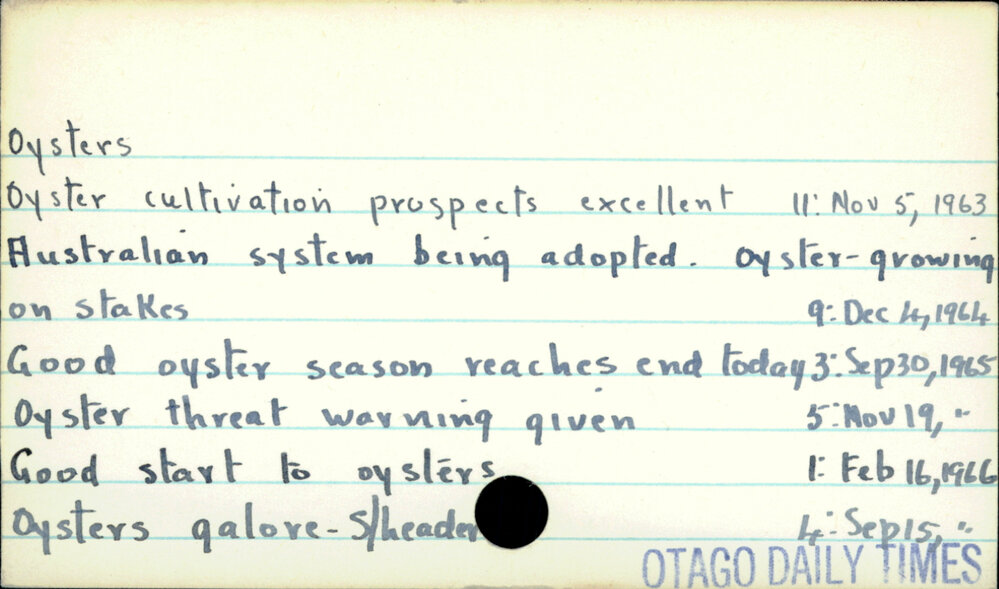 Oysters
Oyster cultivation prospects excellent 11: Nov 5, 1963
Australian system being adopted. Oyster-growing
on stakes 9: Dec 4, 1964
Good oyster season reaches end today 3: Sep 30, 1965
Oyster threat warning given 5: Nov 19, "
Good start to oysters 1: Feb 16, 1966
Oysters galore - S/header 4: Sep 15, "
OTAGO DAILY TIMES